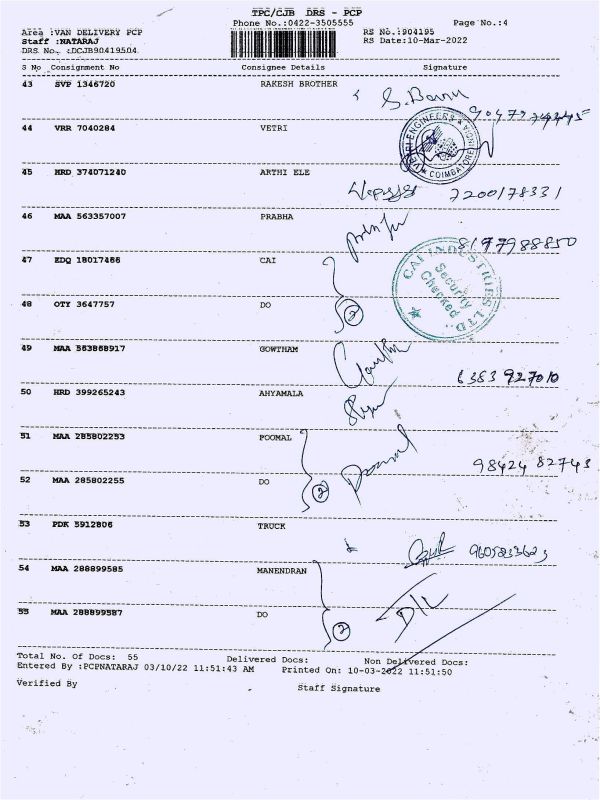 TPC/CJB DRS - PCP
Phone No.:0422-3505555 Page No.:4
Area :VAN DELIVERY PCP RS No.:904195
Staff :NATARAJ RS Date:10-Mar-2022
DRS No. :DCJB90419504
S No Consignment No Consignee Details Signature
43 SVP 1346720 RAKESH BROTHER
44 VRR 7040284 VETRI
ENGINEERS COIMBATORE
45 HRD 374071240 ARTHI ELE
7200178331
46 MAA 563357007 PRABHA
8197988850
47 EDQ 18017486 CAI
CAI INDUSTRIES LTD.,
Security
Checked
48 OTY 3647757 DO
2
49 MAA 563868917 GOWTHAM
6383 927010
50 HRD 399265243 AHYAMALA
51 MAA 285802253 POOMAL
98424 82743
52 MAA 285802255 DO
2
53 PDK 5912806 TRUCK
54 MAA 288899585 MANENDRAN
55 MAA 288899587 DO
2
Total No. Of Docs: 55 Delivered Docs: Non Delivered Docs:
Entered By :PCPNATARAJ 03/10/22 11:51:43 AM Printed On: 10-03-2022 11:51:50
Verified By Staff Signature